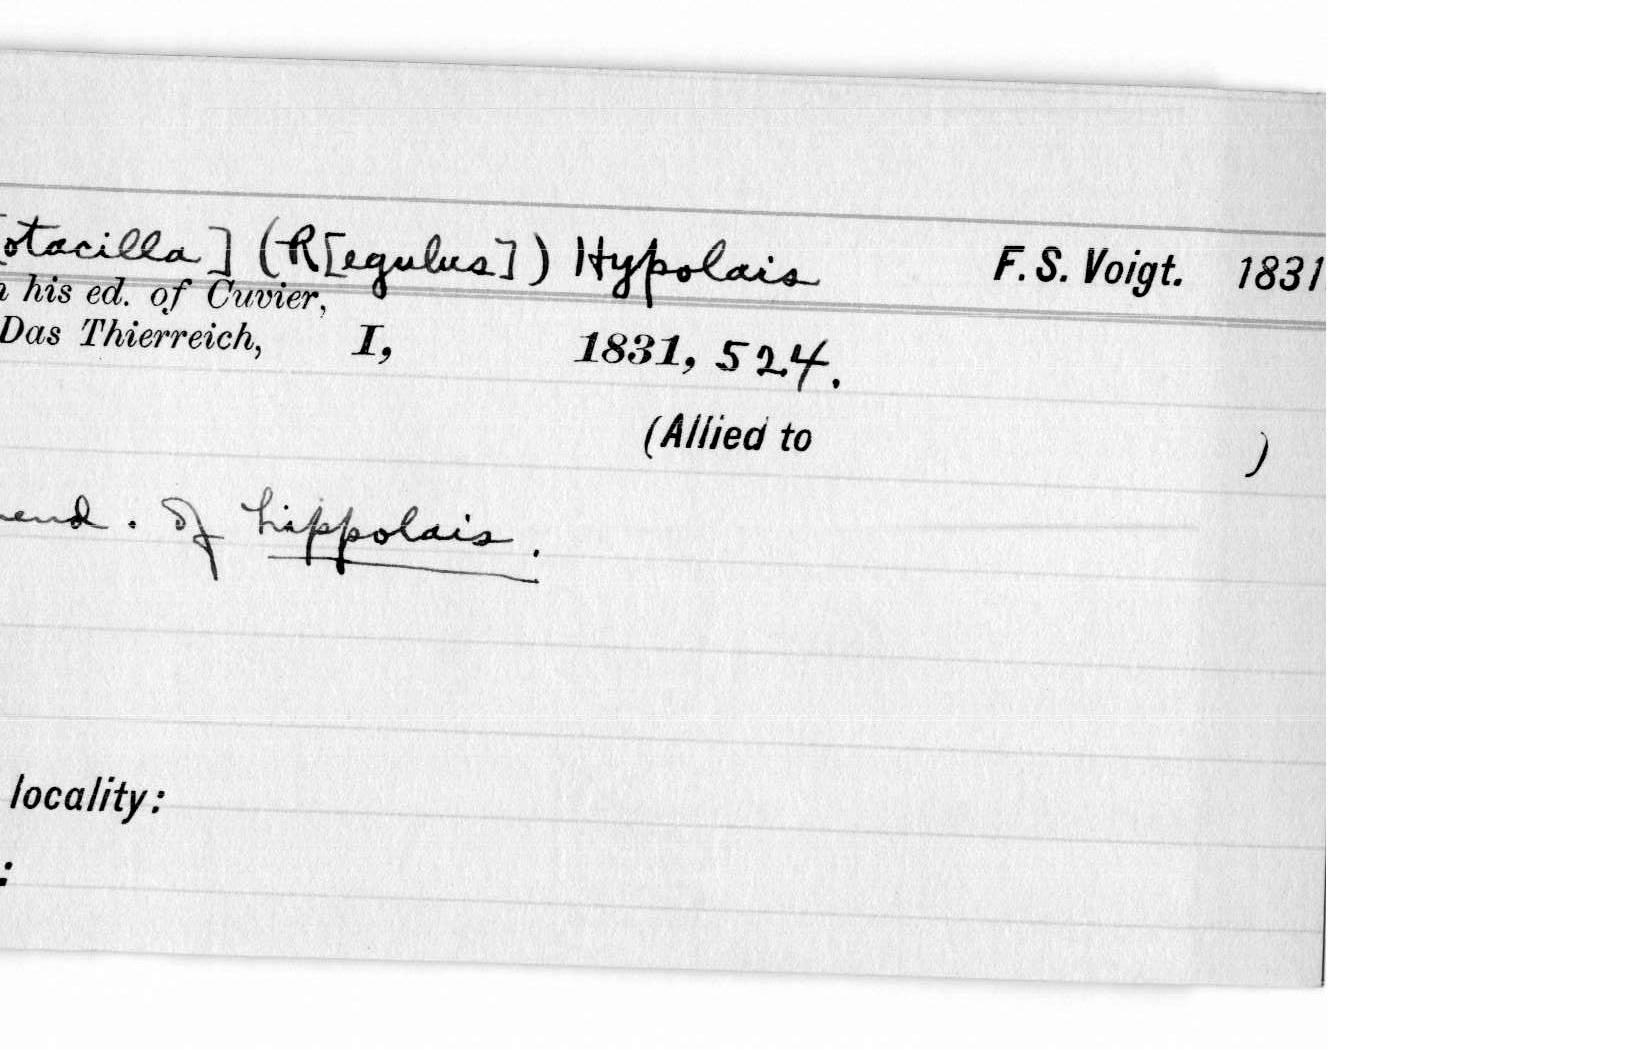 [otacilla] (R[egulus]) Hypolais F. S. Voigt. 1831
his ed. of Cuvier,
Das Thierreich, I, 1831, 524.
(Allied to )
end. of hippolais.
locality:
: